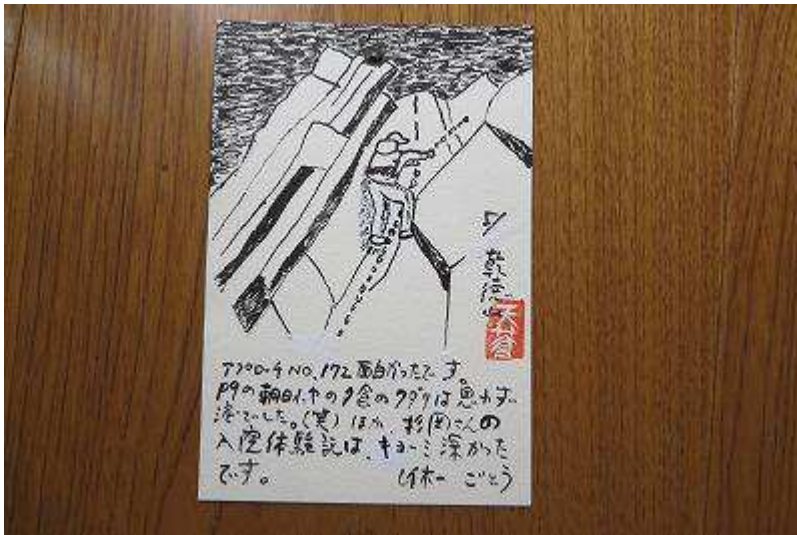 乾徳山
アプローチNO.172面白かったです。
P9の朝日小ヤの夕食のクダリは思わず
でした。(笑) 杉岡さんの
入院体験記は、キョーミ深かった
です。 ごとう